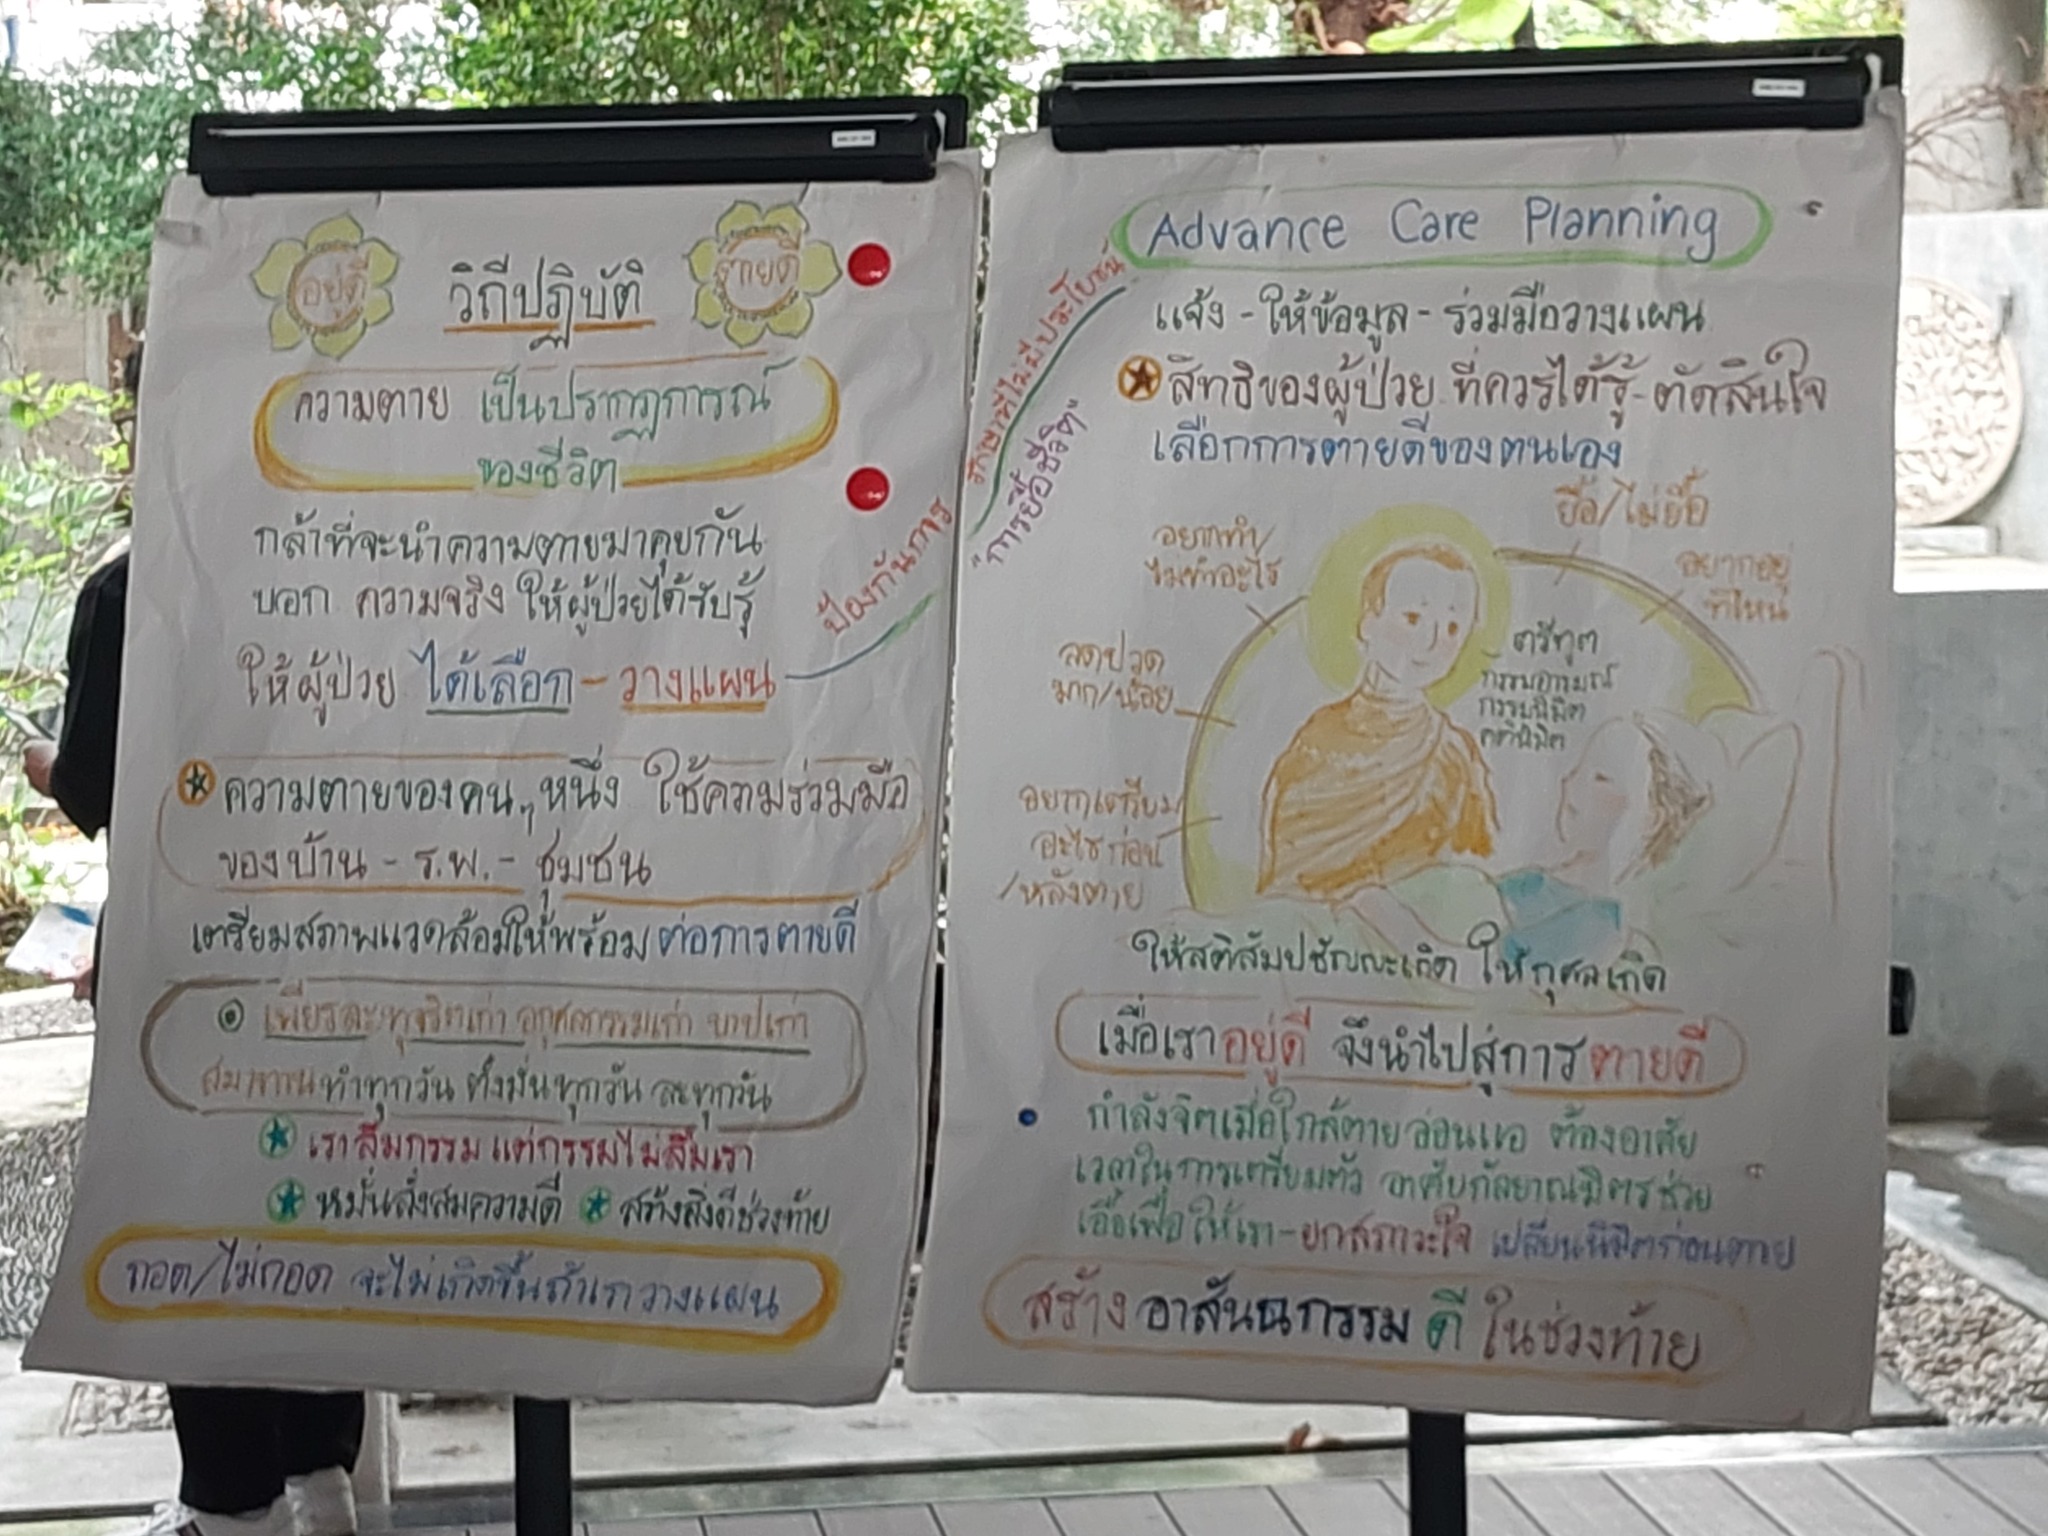 อยู่ดี
วิถีปฏิบัติ
ตายดี
ความตาย เป็นปรากฏการณ์
ของชีวิต
กล้าที่จะนำความตายมาคุยกัน
บอก ความจริง ให้ผู้ป่วยได้รับรู้
ให้ผู้ป่วย ได้เลือก - วางแผน
ป้องกันการ
รักษาที่ไม่มีประโยชน์
"การยื้อชีวิต"
ความตายของคนๆหนึ่ง ใช้ความร่วมมือ
ของบ้าน - ร.พ. - ชุมชน
เตรียมสภาพแวดล้อมให้พร้อม ต่อการตายดี
เพียรละทุจริตเก่า อกุศลกรรมเก่า บาปเก่า
สมาทานทำทุกวัน ตั้งมั่นทุกวัน ละทุกวัน
เราลืมกรรม แต่กรรมไม่ลืมเรา
หมั่นสั่งสมความดี
สร้างสิ่งดีช่วงท้าย
ถอด/ไม่ถอด จะไม่เกิดขึ้นถ้าเราวางแผน
Advance Care Planning
แจ้ง - ให้ข้อมูล - ร่วมมือวางแผน
สิทธิของผู้ป่วย ที่ควรได้รู้ - ตัดสินใจ
เลือกการตายดีของตนเอง
ยื้อ/ไม่ยื้อ
อยากทำ/
ไม่ทำอะไร
อยากอยู่
ที่ไหน
ลดปวด
มาก/น้อย
ตรีทูต
กรรมอารมณ์
กรรมนิมิต
คตินิมิต
อยากเตรียม
อะไรก่อน
/หลังตาย
ให้สติสัมปชัญญะเกิด ให้กุศลเกิด
เมื่อเราอยู่ดี จึงนำไปสู่การตายดี
กำลังจิตเมื่อใกล้ตายอ่อนแอ ต้องอาศัย
เวลาในการเตรียมตัว อาศัยกัลยาณมิตรช่วย
เอื้อเฟื้อให้เรา - ยกสภาวะใจ เปลี่ยนนิมิตก่อนตาย
สร้าง อาสันนกรรม ดี ในช่วงท้าย